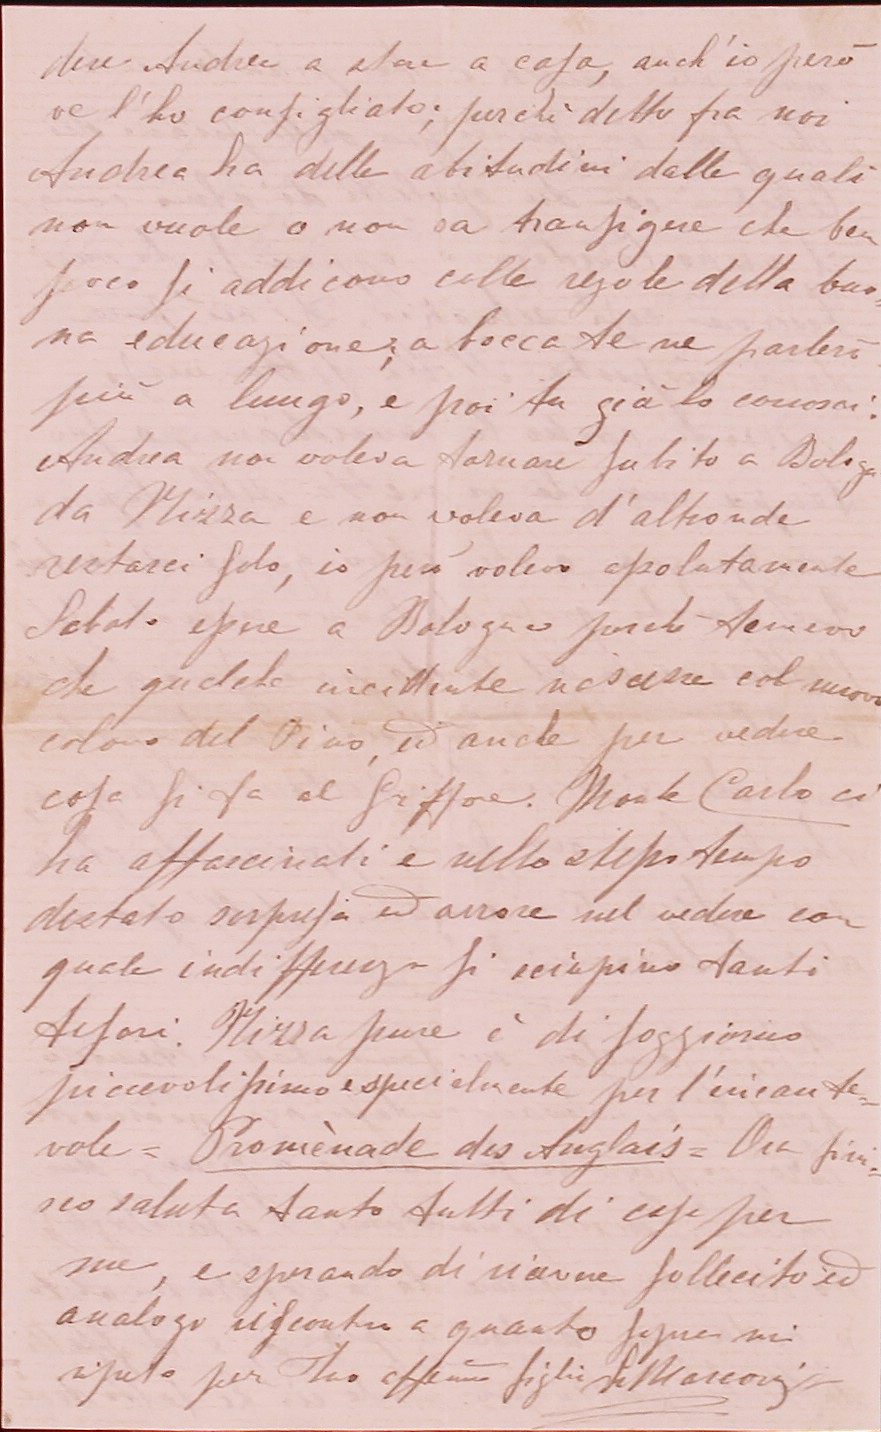 dere Andrea a stare a casa, anch'io però
ve l'ho consigliato; perchè detto fra noi
Andrea ha delle abitudini dalle quali
non vuole o non sa transigere che ben
poco si addicono colle regole della buo=
na educazione; a bocca te ne parlerò
più a lungo, e poi tu già lo conosci.
Andrea non voleva tornare subito a Bologna
da Nizza e non voleva d'altronde
restarci solo, io però volevo assolutamente
Sabato essere a Bologna perchè temevo
che qualche incidente nascesse col nuovo
colono del Pino, ed anche per vedere
cosa si fa al Griffone. Monte Carlo ci
ha affascinati e nello stesso tempo
destato sorpresa ed orrore nel vedere con
quale indifferenza si sciupino tanti
tesori. Nizza pure è di soggiorno
piacevolissimo e specialmente per l'incante=
vole = Promènade des Anglais = Ora fini=
sco saluta tanto tutti di casa per
me, e sperando di riavere sollecito ed
analogo riscontro a quanto sopra mi
ripeto per Tuo affemo figlio Marconi